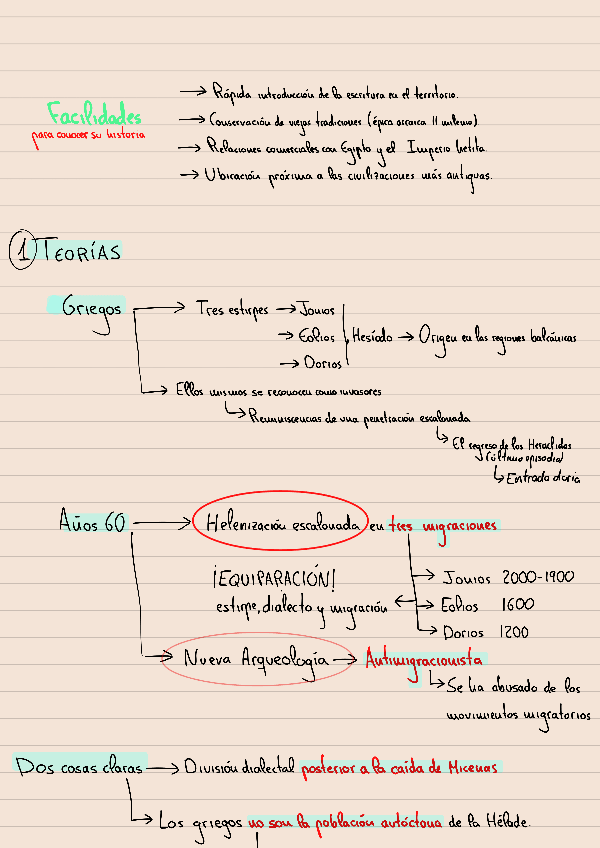 Facilidades
para conocer su historia
→ Rápida introducción de la escritura en el territorio.
→ Conservación de viejas tradiciones (épica arcaica II milenio)
→ Relaciones comerciales con Egipto y el Imperio hetita.
→ Ubicación próxima a las civilizaciones más antiguas.
1 TEORÍAS
Griegos → Tres estirpes → Jonios
→ Eolios Hesíodo → Origen en las regiones balcánicas
→ Dorios
→ Ellos mismos se reconocen como invasores
↳ Reminiscencias de una penetración escalonada
↳ El regreso de los Heraclidas
(último episodio)
↳ Entrada doria
Años 60 → Helenización escalonada en tres migraciones
¡EQUIPARACIÓN! → Jonios 2000-1900
estirpe, dialecto y migración ← → Eolios 1600
→ Dorios 1200
→ Nueva Arqueología → Antimigracionista
↳ Se ha abusado de los
movimientos migratorios
Dos cosas claras → División dialectal posterior a la caída de Micenas
→ Los griegos no son la población autóctona de la Hélade.